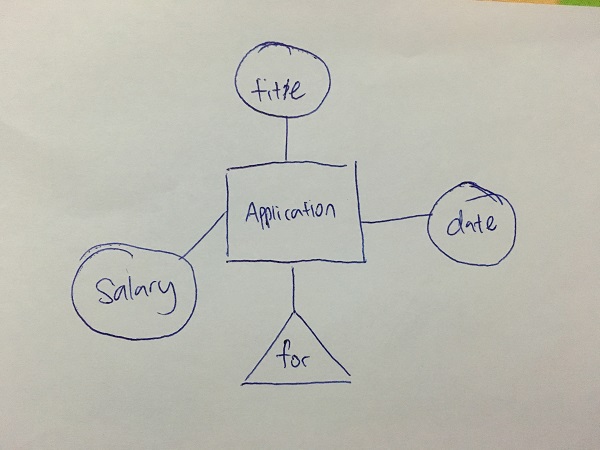 title
Application
date
Salary
for